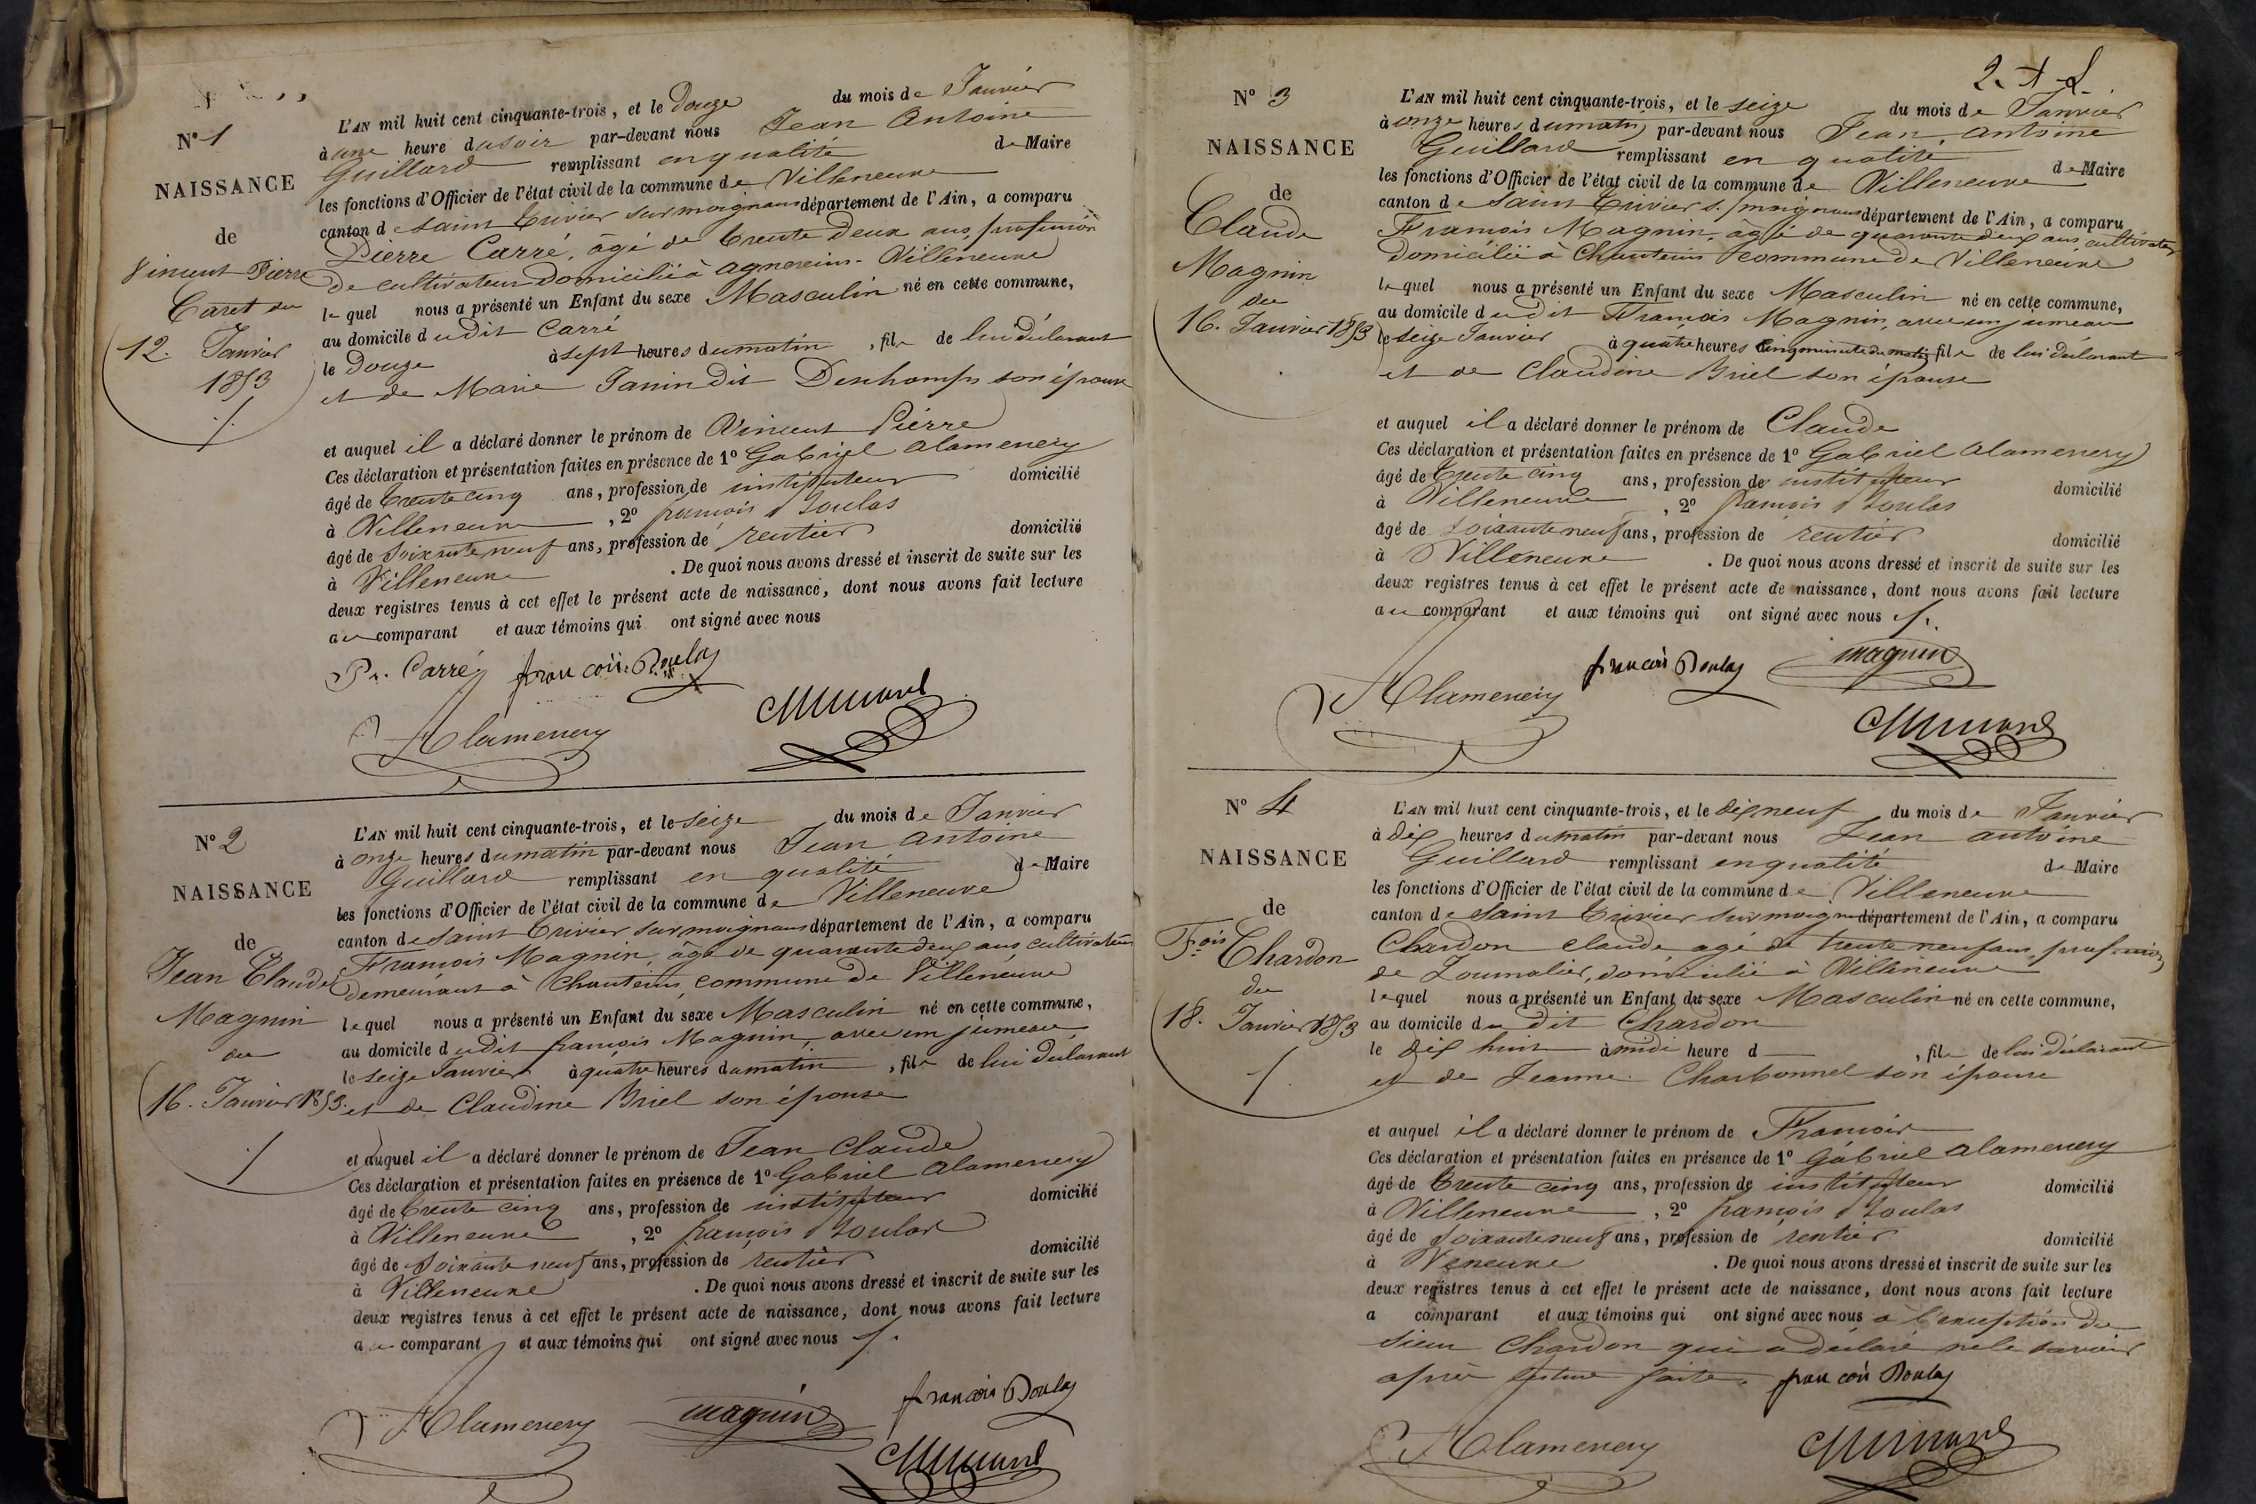 N° 1
NAISSANCE
de
Vincent Pierre
Caret du
12. Janvier
1853
L'AN mil huit cent cinquante-trois, et le Douze du mois de Janvier
à une heure du soir par-devant nous Jean Antoine
Guillard remplissant en qualité de Maire
les fonctions d'Officier de l'état civil de la commune de Villeneuve
canton de Saint Trivier sur moignans département de l'Ain, a comparu
Pierre Carré, âgé de trente deux ans, profession
de cultivateur domicilié à agnereins - Villeneuve
lequel nous a présenté un Enfant du sexe Masculin né en cette commune,
au domicile dudit Carré
le Douze à sept heures du matin, fils de lui déclarant
et de Marie Janin dit Deschamps son épouse
et auquel il a déclaré donner le prénom de Vincent Pierre
Ces déclaration et présentation faites en présence de 1° Gabriel alamenery
âgé de trente cinq ans, profession de instituteur domicilié
à Villeneuve, 2° françois Doulas
âgé de soixante neuf ans, profession de rentier domicilié
à Villeneuve. De quoi nous avons dressé et inscrit de suite sur les
deux registres tenus à cet effet le présent acte de naissance, dont nous avons fait lecture
au comparant et aux témoins qui ont signé avec nous
Pr. Carré françois Doulas
Alamenery
N° 2
NAISSANCE
de
Jean Claude
Magnin
du
16. Janvier 1853.
L'AN mil huit cent cinquante-trois, et le seize du mois de Janvier
à onze heures du matin par-devant nous Jean Antoine
Guillard remplissant en qualité de Maire
les fonctions d'Officier de l'état civil de la commune de Villeneuve
canton de Saint Trivier sur moignans département de l'Ain, a comparu
François Magnin, âgé de quarante deux ans cultivateur
demeurant à Chanteins, commune de Villeneuve
lequel nous a présenté un Enfant du sexe Masculin né en cette commune,
au domicile dudit françois Magnin, avec un jumeau
le seize Janvier à quatre heures du matin, fils de lui déclarant
et de Claudine Briel son épouse
et auquel il a déclaré donner le prénom de Jean Claude
Ces déclaration et présentation faites en présence de 1° Gabriel Alamenery
âgé de trente cinq ans, profession de instituteur domicilié
à Villeneuve, 2° françois Doulas
âgé de soixante neuf ans, profession de rentier domicilié
à Villeneuve. De quoi nous avons dressé et inscrit de suite sur les
deux registres tenus à cet effet le présent acte de naissance, dont nous avons fait lecture
au comparant et aux témoins qui ont signé avec nous
françois Doulas
Alamenery magnin
N° 3
NAISSANCE
de
Claude
Magnin
du
16. Janvier 1853
L'AN mil huit cent cinquante-trois, et le seize du mois de Janvier
à onze heures du matin par-devant nous Jean Antoine
Guillard remplissant en qualité de Maire
les fonctions d'Officier de l'état civil de la commune de Villeneuve
canton de Saint Trivier s. moignans département de l'Ain, a comparu
François Magnin, âgé de quarante deux ans, cultivateur
domicilié à Chanteins commune de Villeneuve
lequel nous a présenté un Enfant du sexe Masculin né en cette commune,
au domicile dudit François Magnin, avec un jumeau
le seize Janvier à quatre heures cinq minutes du matin fils de lui déclarant
et de Claudine Briel son épouse
et auquel il a déclaré donner le prénom de Claude
Ces déclaration et présentation faites en présence de 1° Gabriel Alamenery
âgé de trente cinq ans, profession de instituteur domicilié
à Villeneuve, 2° françois Doulas
âgé de soixante neuf ans, profession de rentier domicilié
à Villeneuve. De quoi nous avons dressé et inscrit de suite sur les
deux registres tenus à cet effet le présent acte de naissance, dont nous avons fait lecture
au comparant et aux témoins qui ont signé avec nous
françois Doulas magnin
Alamenery
N° 4
NAISSANCE
de
Fois Chardon
du
18. Janvier 1853
L'AN mil huit cent cinquante-trois, et le dix neuf du mois de Janvier
à dix heures du matin par-devant nous Jean antoine
Guillard remplissant en qualité de Maire
les fonctions d'Officier de l'état civil de la commune de Villeneuve
canton de Saint Trivier sur moignans département de l'Ain, a comparu
Chardon claude agé de trente neuf ans, profession
de Journalier, domicilié à Villeneuve
lequel nous a présenté un Enfant du sexe Masculin né en cette commune,
au domicile du dit Chardon
le dix huit à midi heure d, fils de lui déclarant
et de Jeanne Charbonnel son épouse
et auquel il a déclaré donner le prénom de François
Ces déclaration et présentation faites en présence de 1° Gabriel alamenery
âgé de trente cinq ans, profession de instituteur domicilié
à Villeneuve, 2° françois Doulas
âgé de soixante neuf ans, profession de rentier domicilié
à Veneuve. De quoi nous avons dressé et inscrit de suite sur les
deux registres tenus à cet effet le présent acte de naissance, dont nous avons fait lecture
a comparant et aux témoins qui ont signé avec nous à l'exception du
sieur Chardon qui a déclaré ne le savoir
après lecture faite. françois Doulas
Alamenery